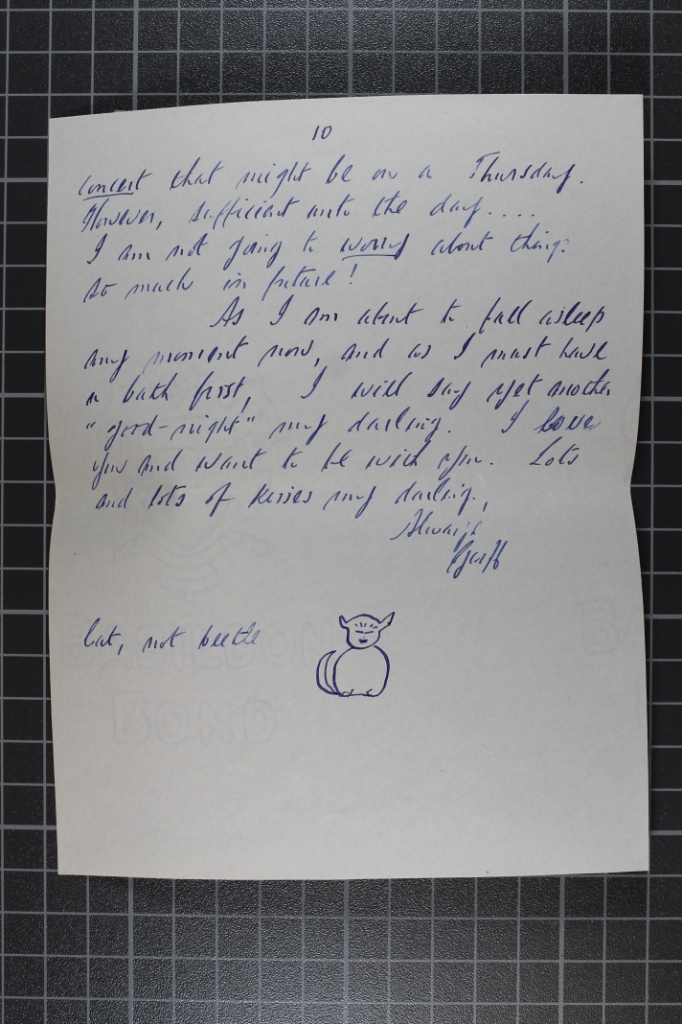 10
concert that might be on a Thursday.
However, sufficient unto the day....
I am not going to worry about things
so much in future!
As I am about to fall asleep
any moment now, and as I must have
a bath first, I will say yet another
"good-night" my darling. I love
you and want to be with you. Lots
and lots of kisses my darling,
Always
Geoff
Cat, not beetle